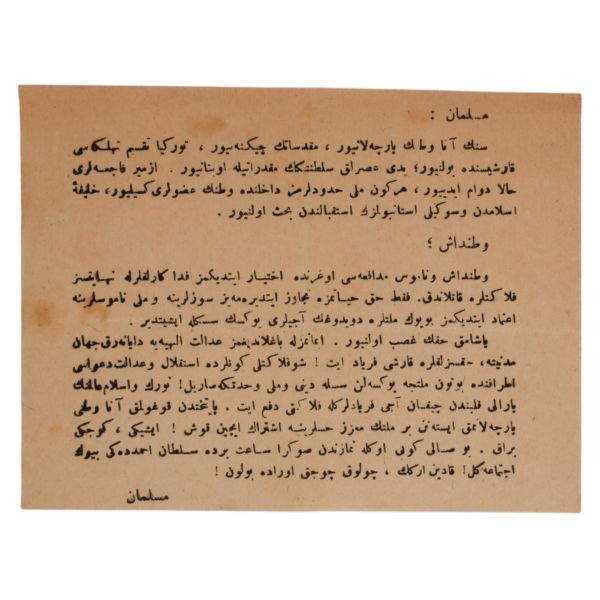 مسلمان :
سنك آنا وطنك پارچه‌لانیور ، مقدساتك چیكنه‌نیور ، توركیا تقسیم تهلكه‌سی
قارشیسنده بولنیور؛ یدی عصرلق سلطنتكك مقدراتیله اویناتیور . ازمیر فاجعه‌لری
حالا دوام ایدییور ، هركون ملی حدودلرمز داخلنده وطنك عضولری كسیلیور، خلیفهٔ
اسلامدن وسوكیلی استانبولمزك استقبالندن بحث اولنیور .
وطنداش ؛
وطنداش وناموس مدافعه‌سی اوغرنده اختیار ایتدیكمز فدا كارلقلرله نهایتسز
فلاكتلره قاتلاندق. فقط حق حیاتمزه تجاوز ایتدیره‌میز سوزلرینه و ملی ناموسلرینه
اعتماد ایتدیكمز بویوك ملتلره دویدوغك آجیلری یوكسك سسكله ایشیتدیر .
یاشامق حقك غصب اولنیور . ایمانمزله باغلاندیغمز عدالت الهییه‌یه دایانه‌رق جهان
مدنیتنه ، حقسزلقلره قارشی فریاد ایت ! شو فلاكتلی كونلرده استقلال وعدالت دعواسی
اطرافنده بوتون ملتجه یوكسه‌لن سسله دینی وملی وحدتكه صاریل! تورك واسلام عالمنك
یارالی قلبندن چیقان آجی فریادلركله فلاكتی دفع ایت . پایتختندن قوغولمق آنا وطنی
پارچه‌لانمق ایسته‌نن بر ملتك معزز حسلرینه اشتراك ایچین قوش ! ایشیكی ، كوجكی
براق . بو صالی كونی اوكله نمازندن صوكرا ساعت برده سلطان احمدده‌كی بیوك
اجتماعه كل! قادین اركك ، چولوق چوجق اوراده بولون !
مسلمان